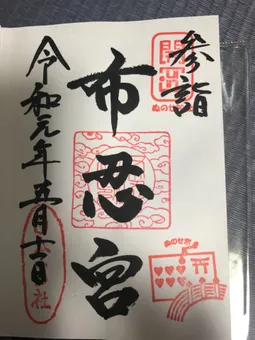 参詣
開運
ぬのせ
布忍宮
ぬのせ宮
令和元年五月十一日
社